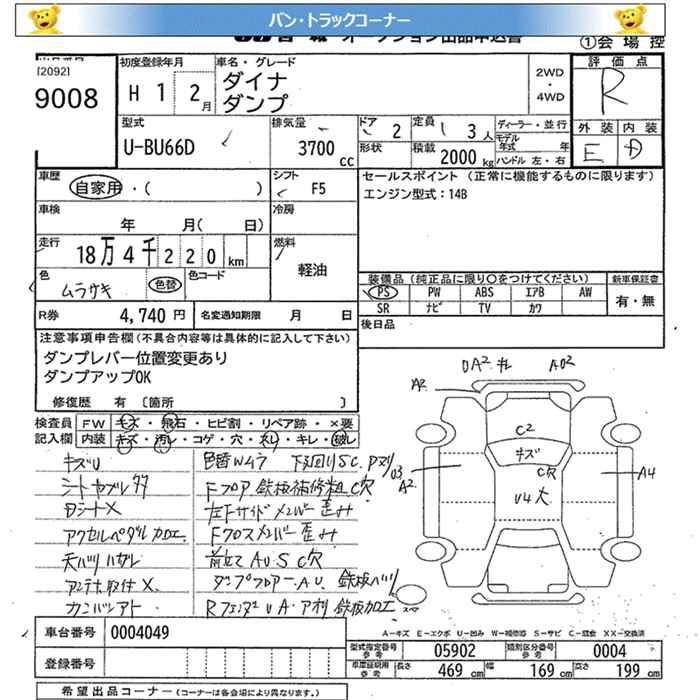 バン・トラックコーナー
①会場控
[2092]
9008
初度登録年月
H 1 2月
車名・グレード
ダイナ
ダンプ
2WD
・
4WD
評価点
R
外装 内装
E D
型式
U-BU66D
排気量
3700 cc
ドア 2
定員 3人
形状
積載 2000 kg
ディーラー・並行
モデル
年式 年
ハンドル 左・右
車歴
自家用・( )
シフト F5
セールスポイント (正常に機能するものに限ります)
エンジン型式:14B
車検
年 月( 日)
冷房
走行
18万4千220km
燃料
軽油
色
ムラサキ
色替
色コード
装備品 (純正品に限り○をつけてください)
新車保証書
PS PW ABS エアB AW
有・無
SR ナビ TV カワ
R券 4,740 円
名変通知期限 月 日
後日品
注意事項申告欄 (不具合内容等は具体的に記入して下さい)
ダンプレバー位置変更あり
ダンプアップOK
修復歴 有 〔箇所 〕
検査員
記入欄
FW キズ・飛石・ヒビ割・リペア跡・×要
内装 キズ・汚レ・コゲ・穴・スレ・キレ・破レ
キズU
色替Wムラ 下廻りSC
Fフロア 鉄板術修粗 C穴
アクセルペダル加工
Fクロスメンバー歪み
天バリハガレ
アンテナ取付X
鉄板ハツリ
鉄板加工
UA2 キレ
A02
A2
C2
キズ
CR
U4大
03
A2
A4
スペア
車台番号 0004049
登録番号
A-キズ E-エクボ U-凹み W-補修跡 S-サビ C-腐食 XX-交換済
型式指定番号
参考
05902
類別区分番号
参考
0004
車庫証明用
参考
長さ 469 cm 幅 169 cm 高さ 199 cm
希望出品コーナー (コーナーは各会場により異なります。)